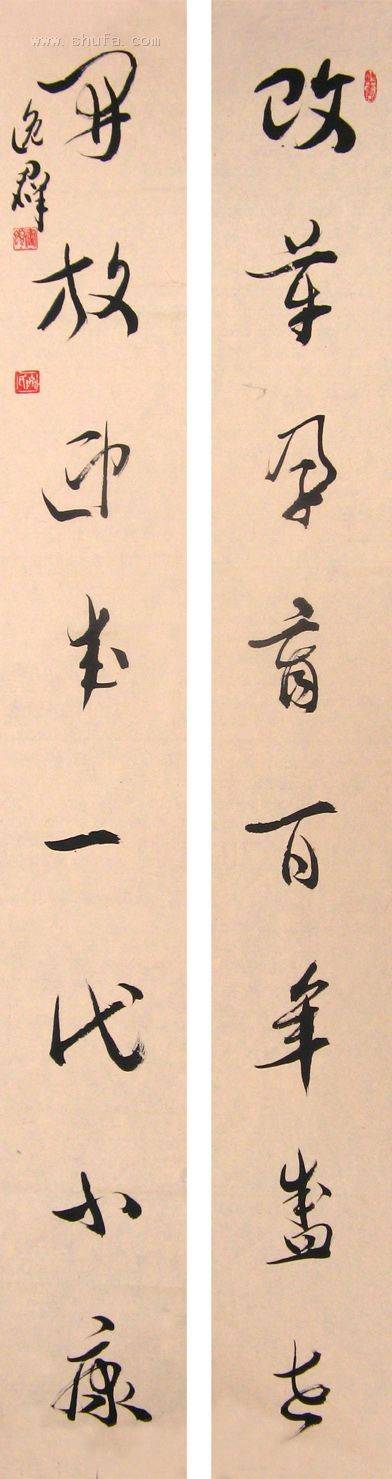 改革孕育百年盛世
開放迎来一代小康
逸羣
www.shufa.com